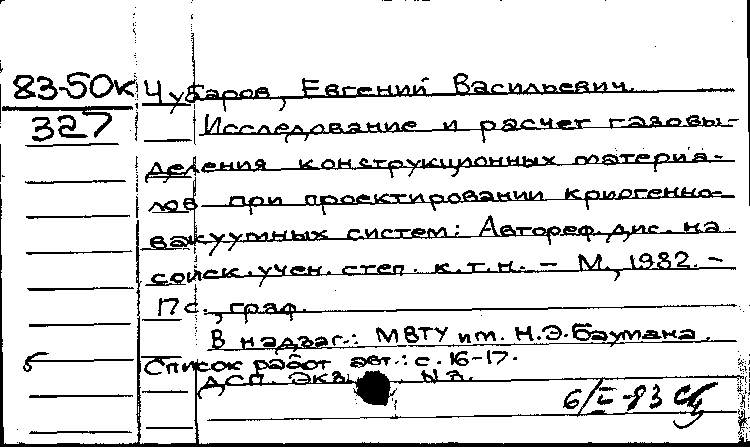 83-50к Чубаров, Евгений Васильевич.
327 Исследование и расчет газовы-
деления конструкционных материа-
лов при проектировании криогенно-
вакуумных систем: Автореф. дис. на
соиск. учен. степ. к.т.н. - М., 1982. -
17 с., граф.
В надзаг.: МВТУ им. Н.Э.Баумана.
б Список работ авт.: с. 16-17.
ДСП. Экз. N 3.
6/I-83